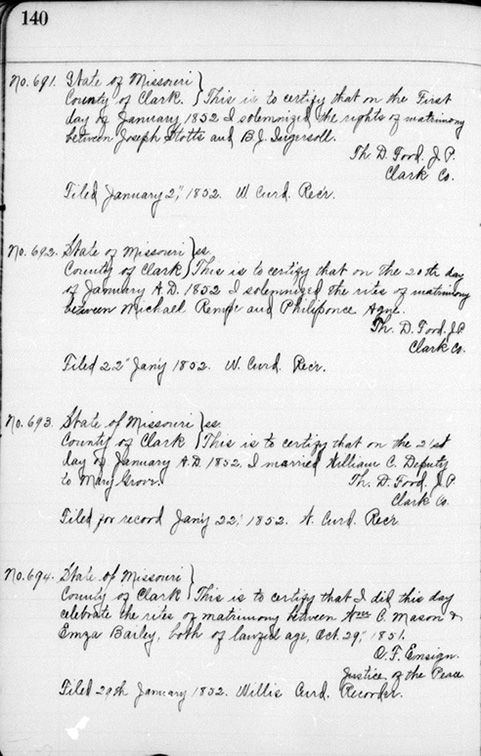 140
No. 691. State of Missouri
County of Clark. } This is to certify that on the First
day of January 1852 I solemnized the rights of matrimony
between Joseph Stotts and B.J. Ingersoll.
Th. D. Ford. J.P.
Clark Co.
Filed January 2", 1852. W. Curd. Rec'r.
No. 692. State of Missouri } ss.
County of Clark } This is to certify that on the 20th day
of January A.D. 1852 I solemnized the rites of matrimony
between Michael and
Th. D. Ford. J.P.
Clark Co.
Filed 22" Jan'y 1852. W. Curd. Rec'r.
No. 693. State of Missouri } ss.
County of Clark } This is to certify that on the 21st
day of January A.D. 1852. I married William C. Deputy
to Mary
Th. D. Ford. J.P.
Clark Co.
Filed for record Jan'y 22, 1852. Curd. Rec'r
No. 694. State of Missouri }
County of Clark } This is to certify that I did this day
celebrate the rites of matrimony between C. Mason &
Emza Bailey, both of lawful age, Oct. 29, 1851.
Ensign.
Justice of the Peace
Filed 29th January 1852. Willis Curd. Recorder.